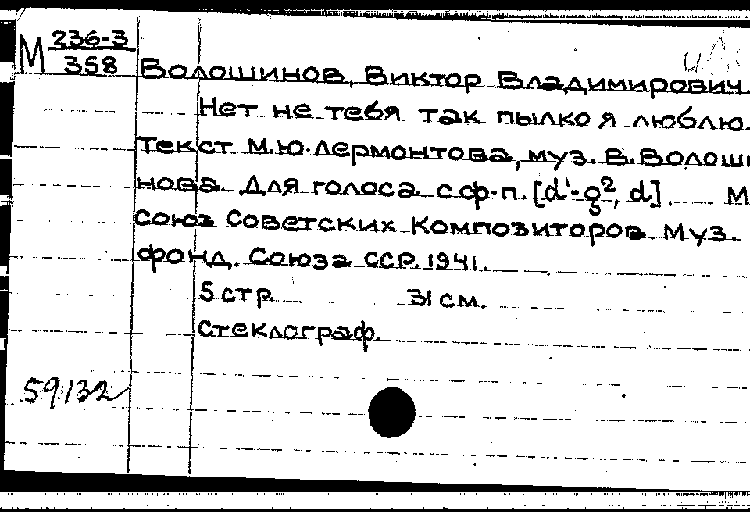 М 236-3
358
Волошинов, Виктор Владимирович
Нет не тебя так пылко я люблю.
Текст М.Ю.Лермонтова, муз. В. Волоши
нова. Для голоса с ф-п. [d¹-g², d] М
Союз Советских Композиторов Муз.
фонд. Союза ССР. 1941.
5 стр. 31 см.
Стеклограф.
59132